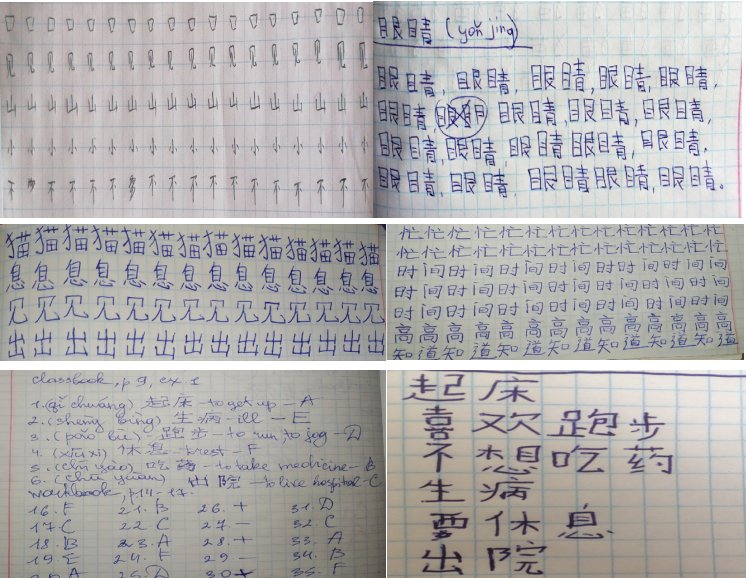 口口口口口口口口口口口口口口口口口口
山山山山山山山山山山山山山山山山山山
小小小小小小小小小小小小小小小小小小
不不不不不不不不不不不不不不不不
眼睛 (yǎn jing)
眼睛, 眼睛, 眼睛, 眼睛, 眼睛,
眼睛 眼睛, 眼睛, 眼睛,
眼睛, 眼睛, 眼睛 眼睛, 眼睛,
眼睛, 眼睛, 眼睛 眼睛, 眼睛。
猫猫猫猫猫猫猫猫猫猫猫猫猫猫
息息息息息息息息息息息息息息
出出出出出出出出出出出出出出
忙忙忙忙忙忙忙忙忙忙忙忙忙忙
忙忙忙忙忙忙忙忙忙忙忙忙忙忙
时间时间时间时间时间时间时间
时间时间时间时间时间时间时间
时间时间时间时间时间时间时间
高高高高高高高高高高高高高高
知道知道知道知道知道知道知道
classbook, p 9, ex. 1
1. (qǐ chuáng) 起床 - to get up - A
2. (shēng bìng) 生病 - ill - E
3. (pǎo bù) - 跑步 - to run, to jog - D
4. (xiūxi) 休息 - to rest - F
5. (chī yào) 吃药 - to take medicine - B
6. (chū yuàn) 出院 - to live hospital - C
workbook, p14-17.
16. F 21. B 26. + 31. D
17. C 22 C 27. - 32. C
18. B 23. A 28. + 33. A
19. E 24. F 29. - 34. B
20. A 25. D 30 + 35. F
起床
喜欢跑步
不想吃药
生病
要休息
出院